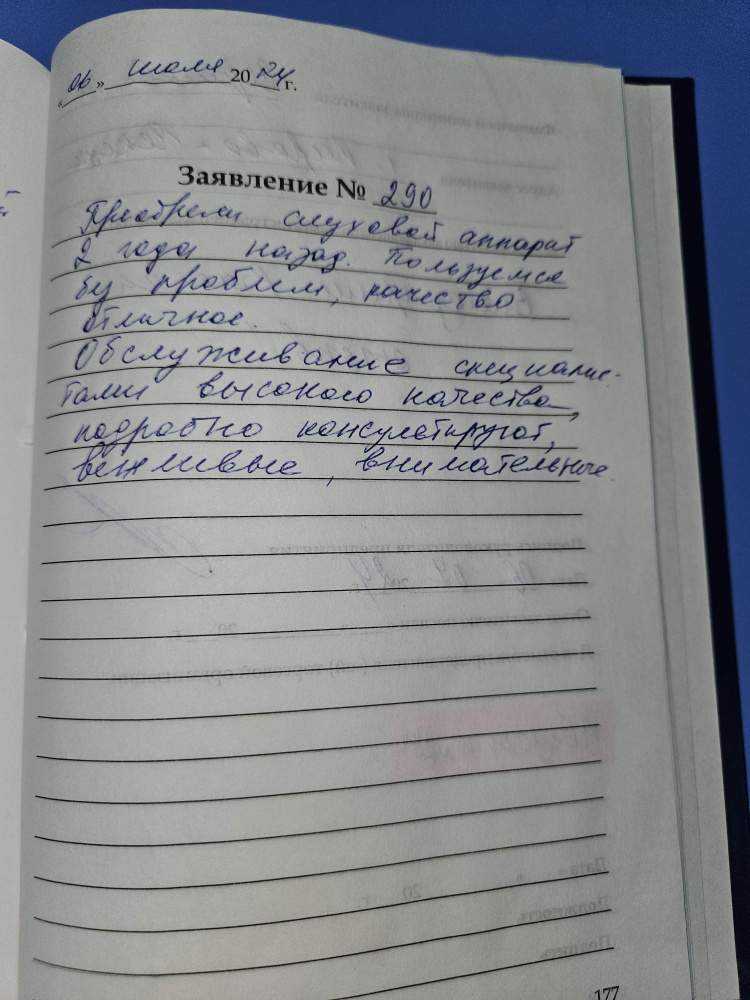 «06» июля 2024г.
Заявление № 290
Приобрели слуховой аппарат
2 года назад. Пользуемся
бу проблем, качество
отличное.
Обслуживание специалис-
тами высокого качества,
подробно консультируют,
вежливые, внимательные.
177